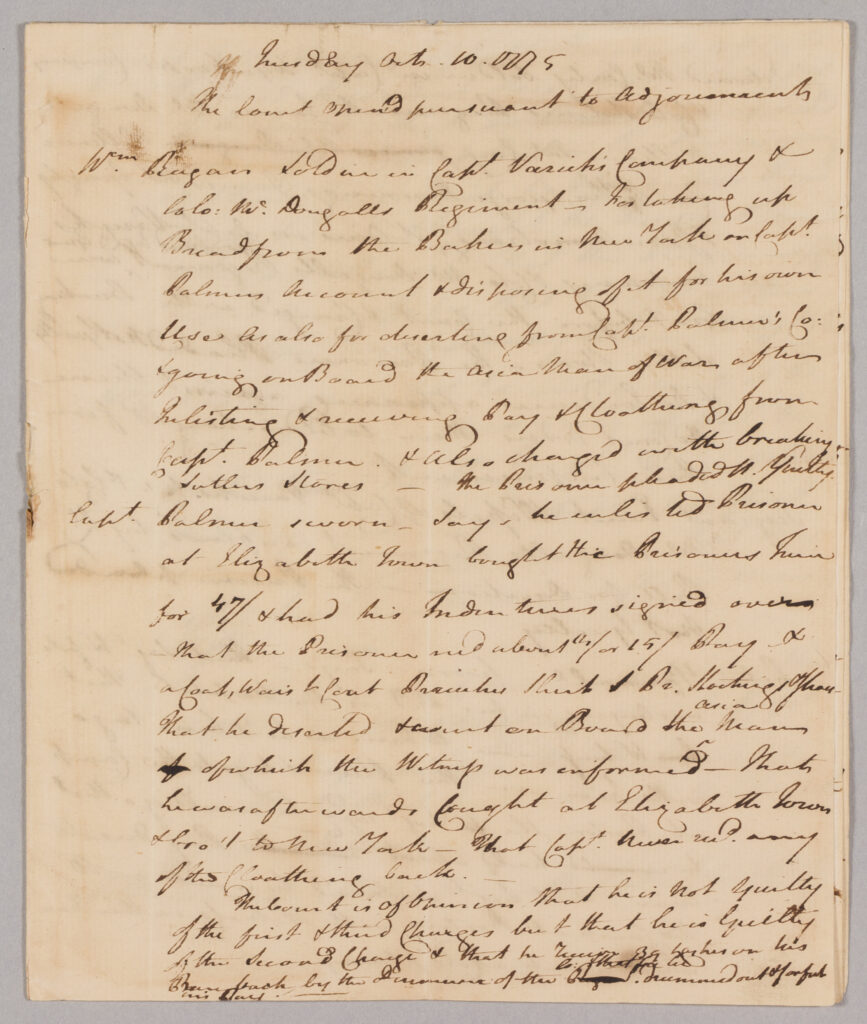 Tuesday Octr. 10. 1775
The Court opend pursuant to Adjournment
Wm. Reagan Soldier in Capt. Varick's Company &
Colo: Mc. Dougalls Regiment – For taking up
Bread from the Bakers in New York on Capt.
Palmers Account & disposing of it for his own
Use As also for deserting from Capt. Palmer's Co:
& going on Board the Asia Man of War after
Inlisting & receiving Pay & Cloathing from
Capt. Palmer. & also charged with breaking
Sutlers Stores — the Prisoner pleaded Nt. Guilty
Capt. Palmer sworn – Says he enlisted Prisoner
at Elizabeth Town bought the Prisoners Time
for 47/ & had his Indentures signed over
– That the Prisoner recd about 14/ or 15/ Pay &
a Coat, Waist Coat Breeches Shirt 1 Pr. Stockings & Shoes
That he deserted & went on Board the Asia Man
of which the Witness was informed – That
he was afterwards Caught at Elizabeth Town
& bro't to New York – That Capt. never recd. any
of the Cloathing back. –
The Court is of Opinion that he is not Guilty
of the first & third Charges but that he is Guilty
of the Second Charge & that he Receive 39 Lashes on his
Bare back by the Drummers of the drummed out & forfeit
his Pay.